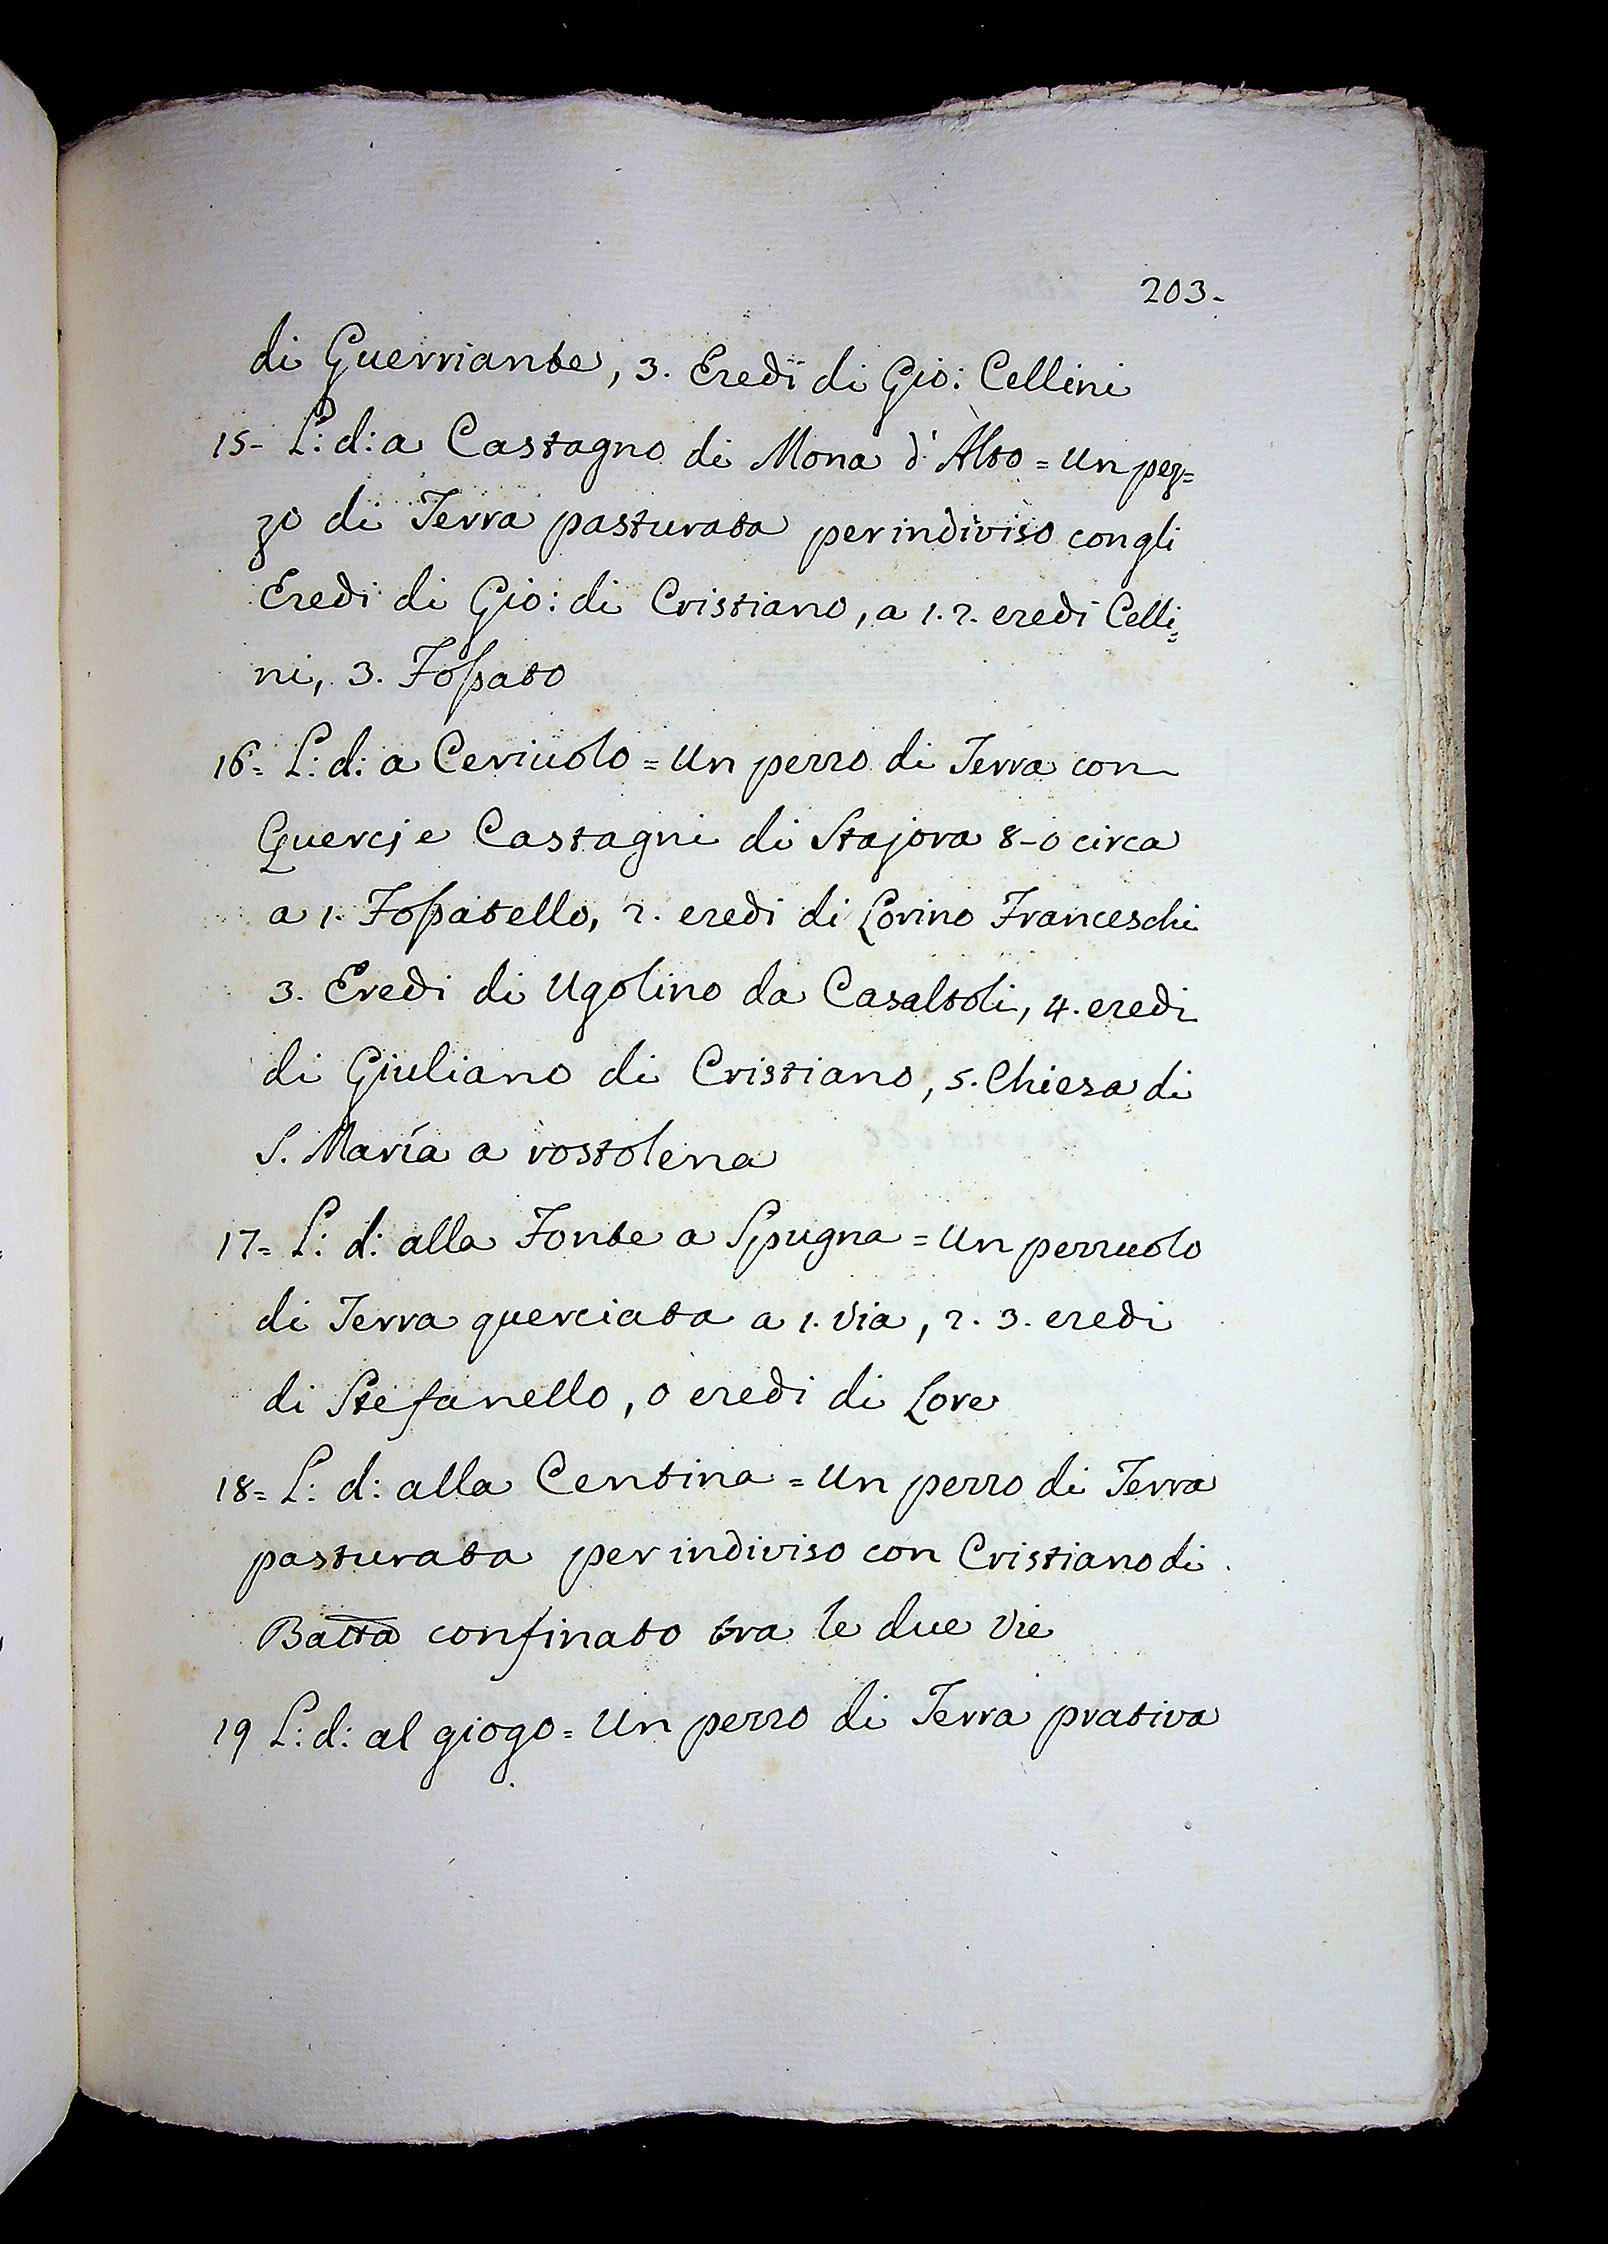 203.
di Guerriante, 3. Eredi di Gio: Cellini
15- L: d: a Castagno di Mona d'Alto = Un pez=
zo di Terra pasturata per indiviso con gli
Eredi di Gio: di Cristiano, a 1. 2. eredi Celli=
ni, 3. Fossato
16= L: d: a Ceriuolo = Un pezzo di Terra con
Querci e Castagni di Stajora 8-0 circa
a 1. Fossatello, 2. eredi di Lorino Franceschi
3. Eredi di Ugolino da Casaltoli, 4. eredi
di Giuliano di Cristiano, 5. Chiesa di
S. María a rostolena
17= L: d: alla Fonte a Spugna = Un pezzuolo
di Terra querciata a 1. Via, 2. 3. eredi
di Stefanello, o eredi di Lore
18= L: d: alla Centina = Un pezzo di Terra
pasturata per indiviso con Cristiano di
Batta confinato tra le due Vie
19 L: d: al giogo = Un pezzo di Terra prativa